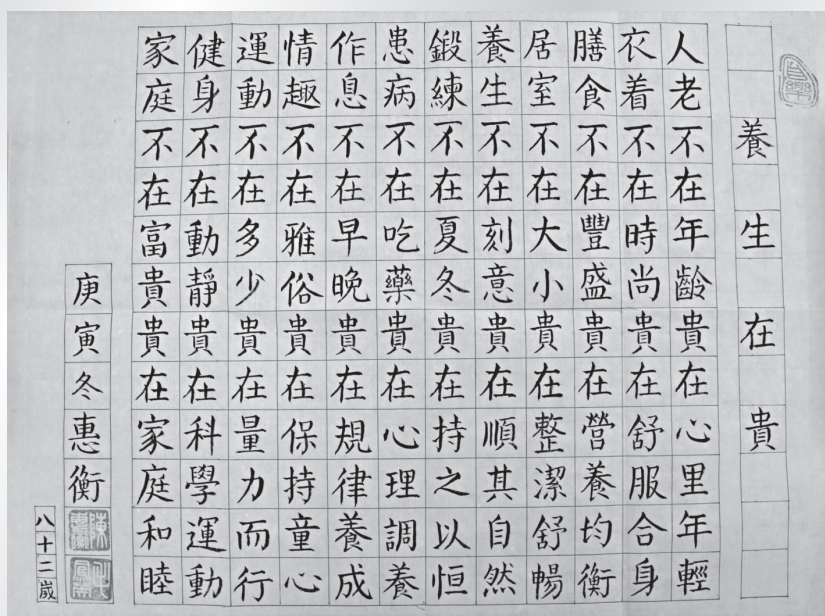 養生在貴
人老不在年齡貴在心里年輕
衣着不在時尚貴在舒服合身
膳食不在豐盛貴在營養均衡
居室不在大小貴在整潔舒暢
養生不在刻意貴在順其自然
鍛練不在夏冬貴在持之以恒
患病不在吃藥貴在心理調養
作息不在早晚貴在規律養成
情趣不在雅俗貴在保持童心
運動不在多少貴在量力而行
健身不在動靜貴在科學運動
家庭不在富貴貴在家庭和睦
庚寅冬惠衡
八十二歲